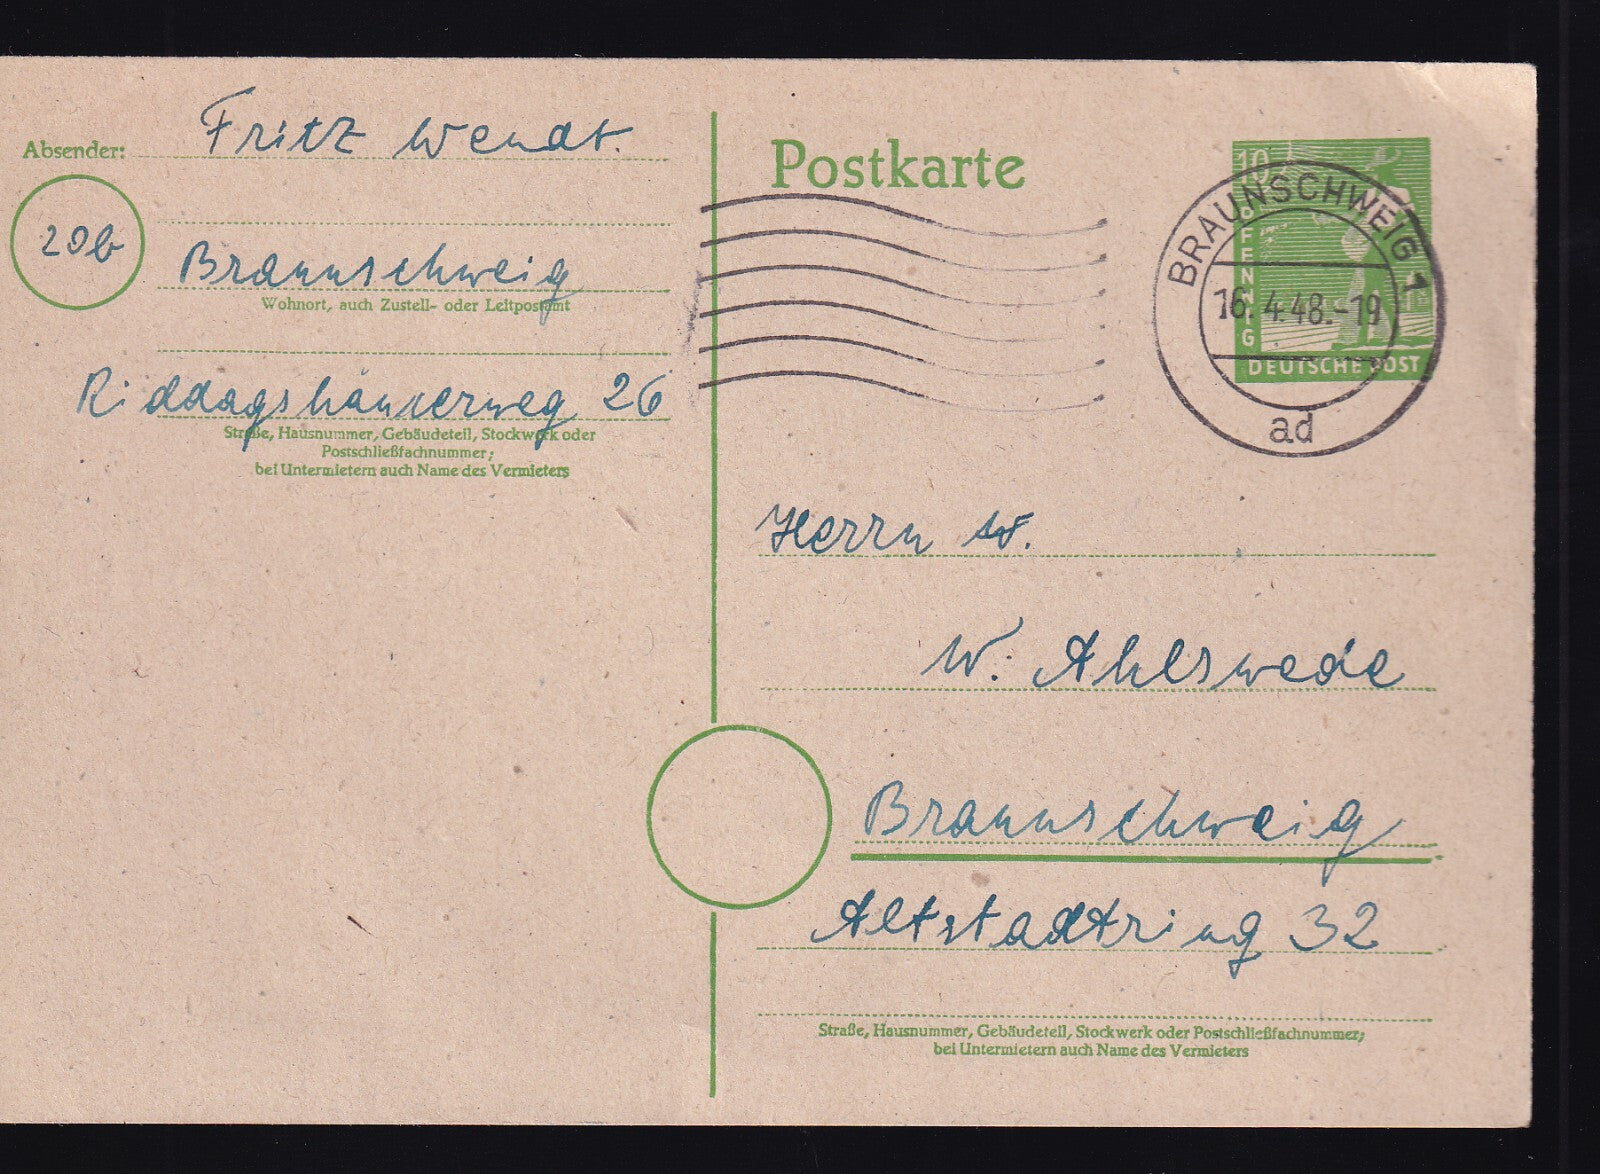 Absender: Fritz Wendt.
20b
Braunschweig
Wohnort, auch Zustell- oder Leitpostamt
Riddagshäuserweg 26
Straße, Hausnummer, Gebäudeteil, Stockwerk oder
Postschließfachnummer;
bei Untermietern auch Name des Vermieters
Postkarte
10
PFENNIG
DEUTSCHE POST
BRAUNSCHWEIG 1
16.4.48.-19
ad
Herrn
W. Ahlswede
Braunschweig
Altstadtring 32
Straße, Hausnummer, Gebäudeteil, Stockwerk oder Postschließfachnummer;
bei Untermietern auch Name des Vermieters